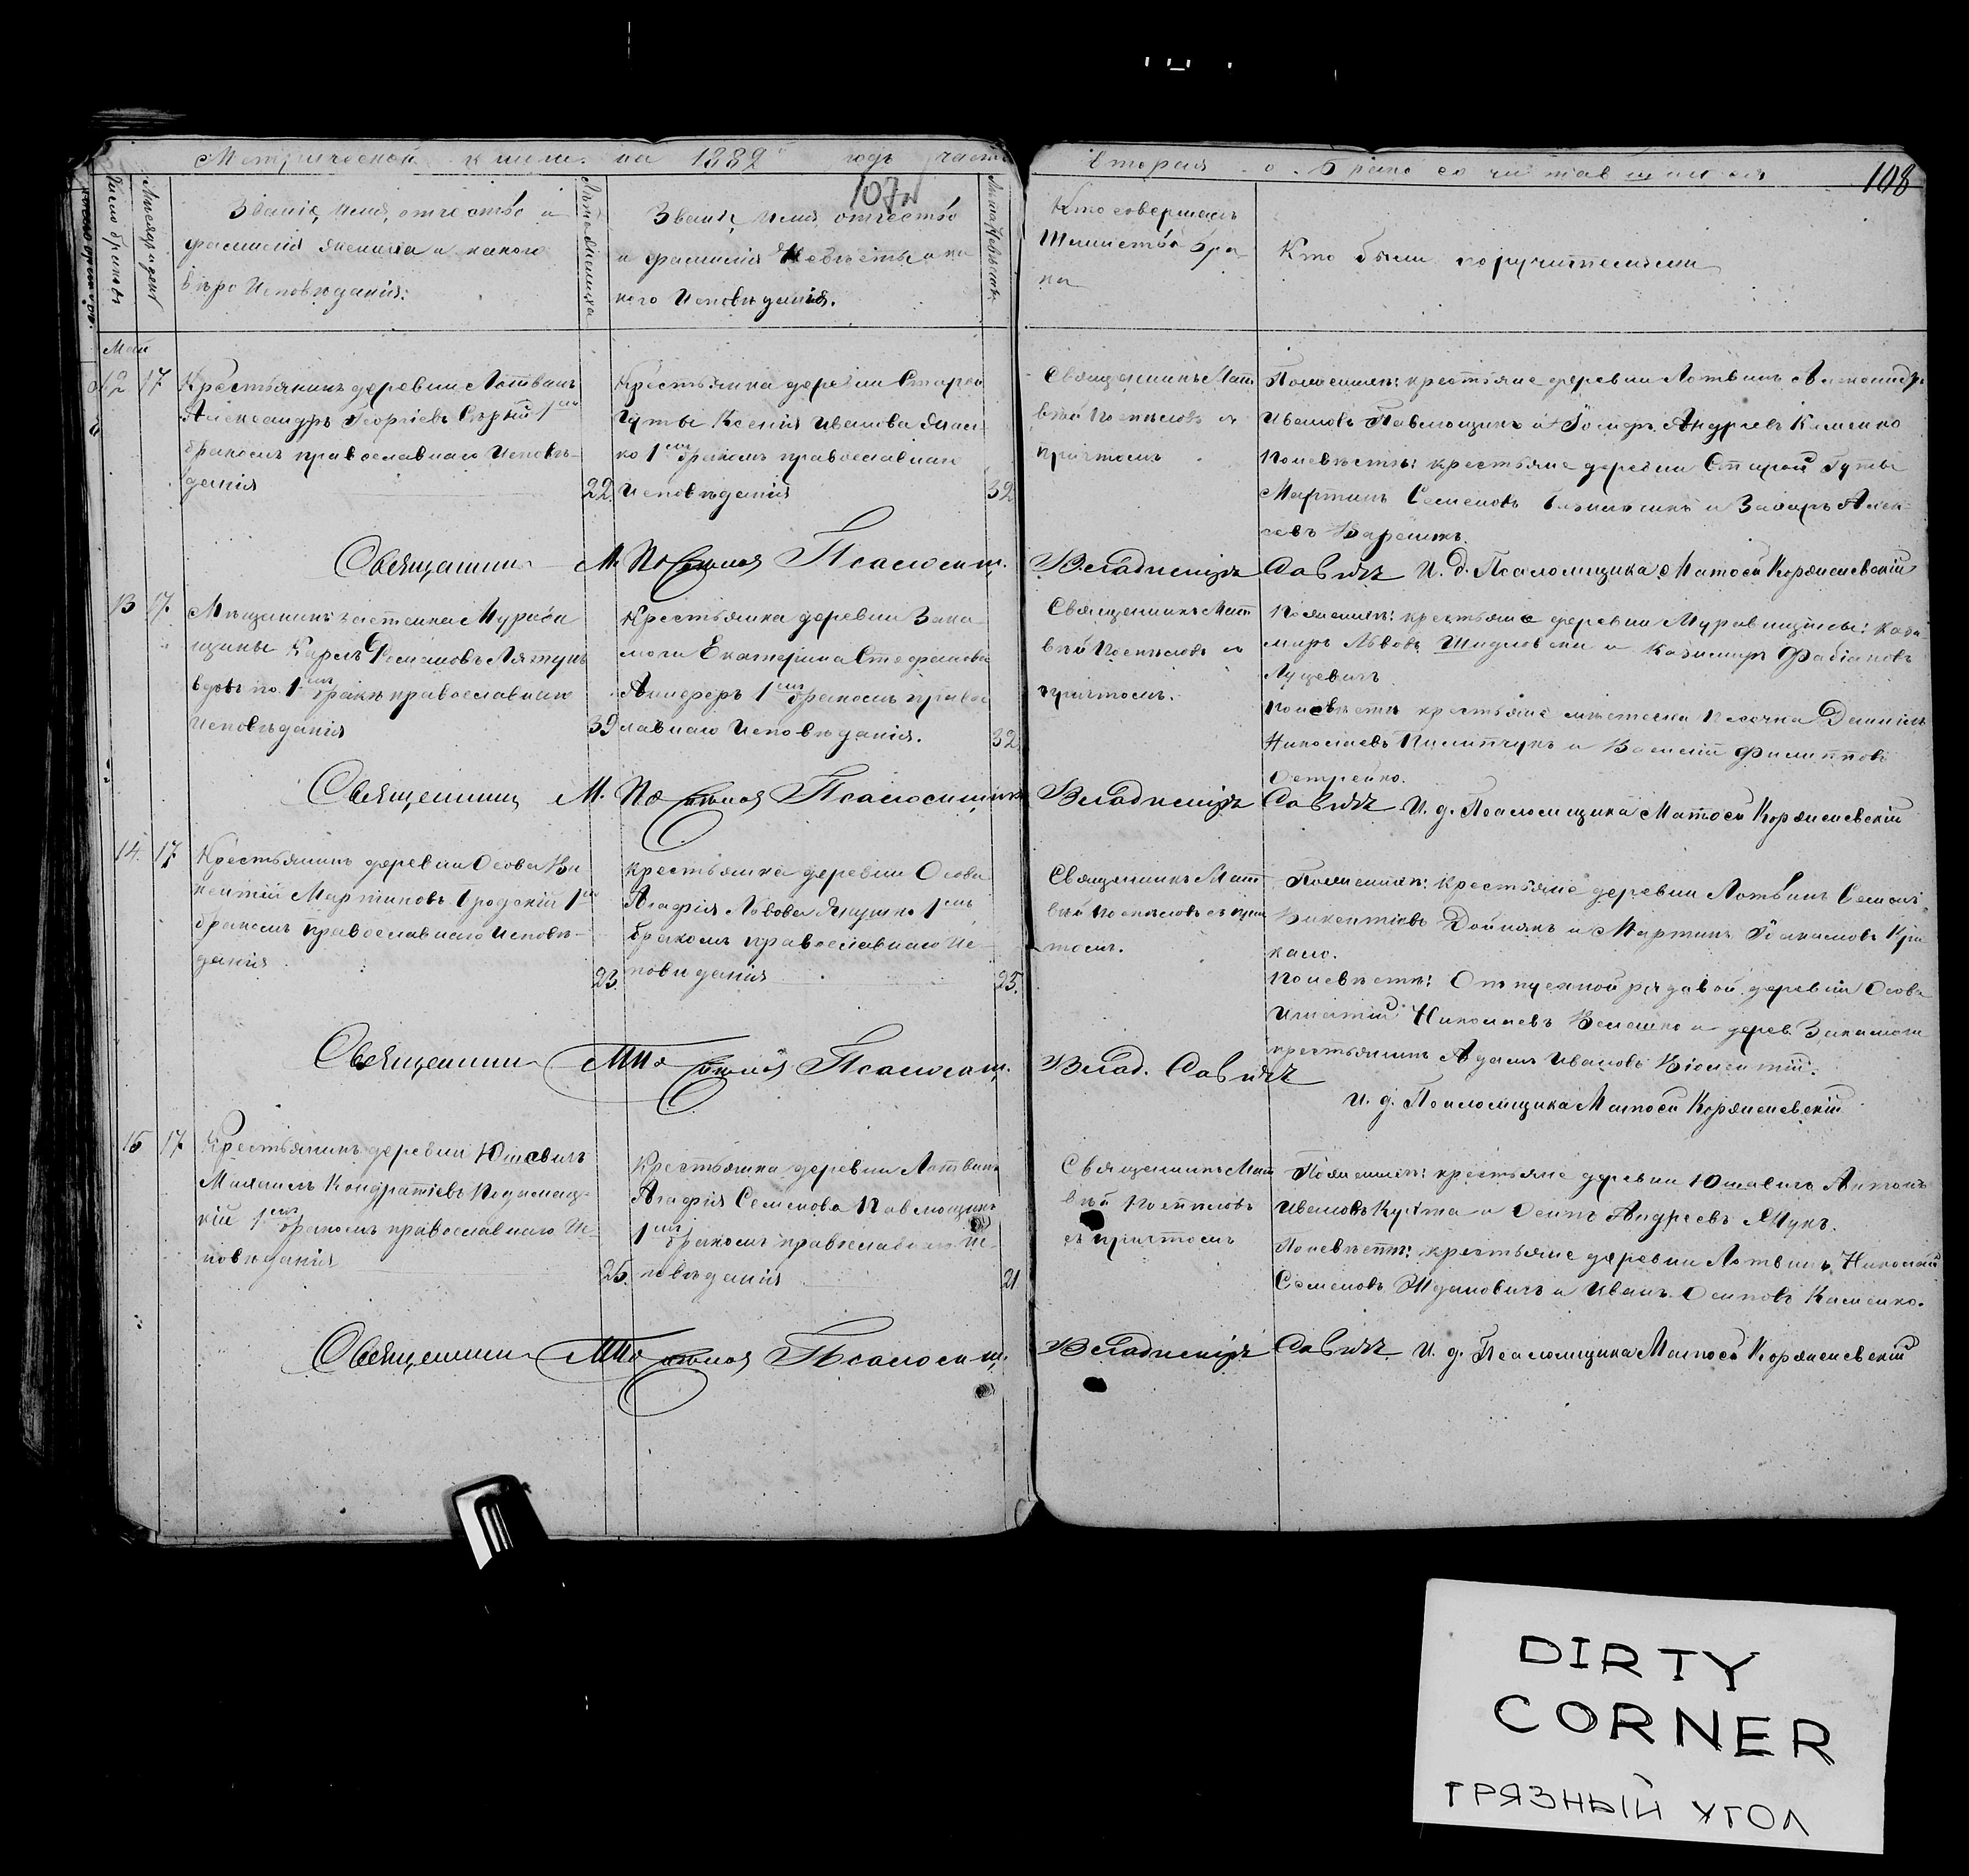 Метрической книги на 1882 годъ часть вторая о бракосочетавшихся
107
108
Число браковъ
Месяцъ и день
Званіе, имя, отчество и
фамилія жениха и какого
вѣроисповѣданія.
Лѣта жениха
Званіе, имя отчество
и фамилія невѣсты и ка
кого исповѣданія.
Лѣта невѣсты
Кто совершалъ
таинство бра
ка
Кто были поручителями
Май
12 17
Крестьянинъ деревни Лотвинъ
Александръ Георгіевъ Сѣрый 1мъ
бракомъ православнаго исповѣ-
данія
22
Крестьянка деревни Старой
Гуты Ксенія Иванова
ко 1мъ бракомъ православнаго
исповѣданія
32
Священникъ Мат
вѣй съ
причтомъ
По женихѣ: крестьяне деревни Лотвинъ Александръ
Ивановъ Павлющикъ и Андреевъ Клименко
По невѣстѣ: крестьяне деревни Старой Гуты
Мартинъ Семеновъ и Захаръ Алек-
сѣевъ
Священникъ М. Псаломщ. Владиміръ Савичъ И. д. Псаломщика Матѳей Корженевскій
13 17
Мѣщанинъ застенка Мурава
щины Карлъ Лятунъ
вдовъ по 1мъ бракѣ православнаго
исповѣданія
39
Крестьянка деревни Зака
моги Екатерина Стефанова
1мъ бракомъ право
славнаго исповѣданія.
32
Священникъ Мат
вѣй съ
причтомъ.
По женихѣ: крестьяне деревни Муравищины: Кази
миръ Львовъ Шидловскій и Казимиръ Фабіановъ
Луцевичъ
По невѣстѣ крестьяне мѣстечка Песочна Даніилъ
Николаевъ Пилипчукъ и Василій Филипповъ
Острейко.
Священникъ М. Псаломщикъ Владиміръ Савичъ И. д. Псаломщика Матѳей Корженевскій
14. 17
Крестьянинъ деревни Осова Ви
кентій Мартиновъ Бродскій 1мъ
бракомъ православнаго исповѣ-
данія
23
Крестьянка деревни Осова
Агафія Львова Якушко 1мъ
бракомъ православнаго ис
повѣданія
25.
Священникъ Мат
вѣй съ прич
томъ.
По женихѣ: крестьяне деревни Лотвинъ Семенъ
Викентіевъ Дойнякъ и Мартинъ
кало.
По невѣстѣ: Отпускной рядовой деревни Осова
Игнатій Николаевъ Велешко и дерев. Закамоги
крестьянинъ Адамъ Ивановъ
Священникъ Псаломщ. Влад. Савичъ
И. д. Псаломщика Матѳей Корженевскій
15 17
Крестьянинъ деревни Юшевичъ
Михаилъ Кондратіевъ
кій 1мъ бракомъ православнаго ис
повѣданія
25.
Крестьянка деревни Лотвинъ
Агафія Семенова Павлющикъ
1мъ бракомъ православнаго ис
повѣданія
21
Священникъ Мат
вѣй
съ причтомъ
По женихѣ: крестьяне деревни Юшевичъ Антонъ
Ивановъ Кухта и Осипъ Андреевъ Мукъ.
По невѣстѣ: крестьяне деревни Лотвинъ Николай
Семеновъ Ждановичъ и Иванъ Осиповъ Клименко.
Священникъ Псаломщ. Владиміръ Савичъ И. д. Псаломщика Матѳей Корженевскій
DIRTY
CORNER
ГРЯЗНЫЙ УГОЛ